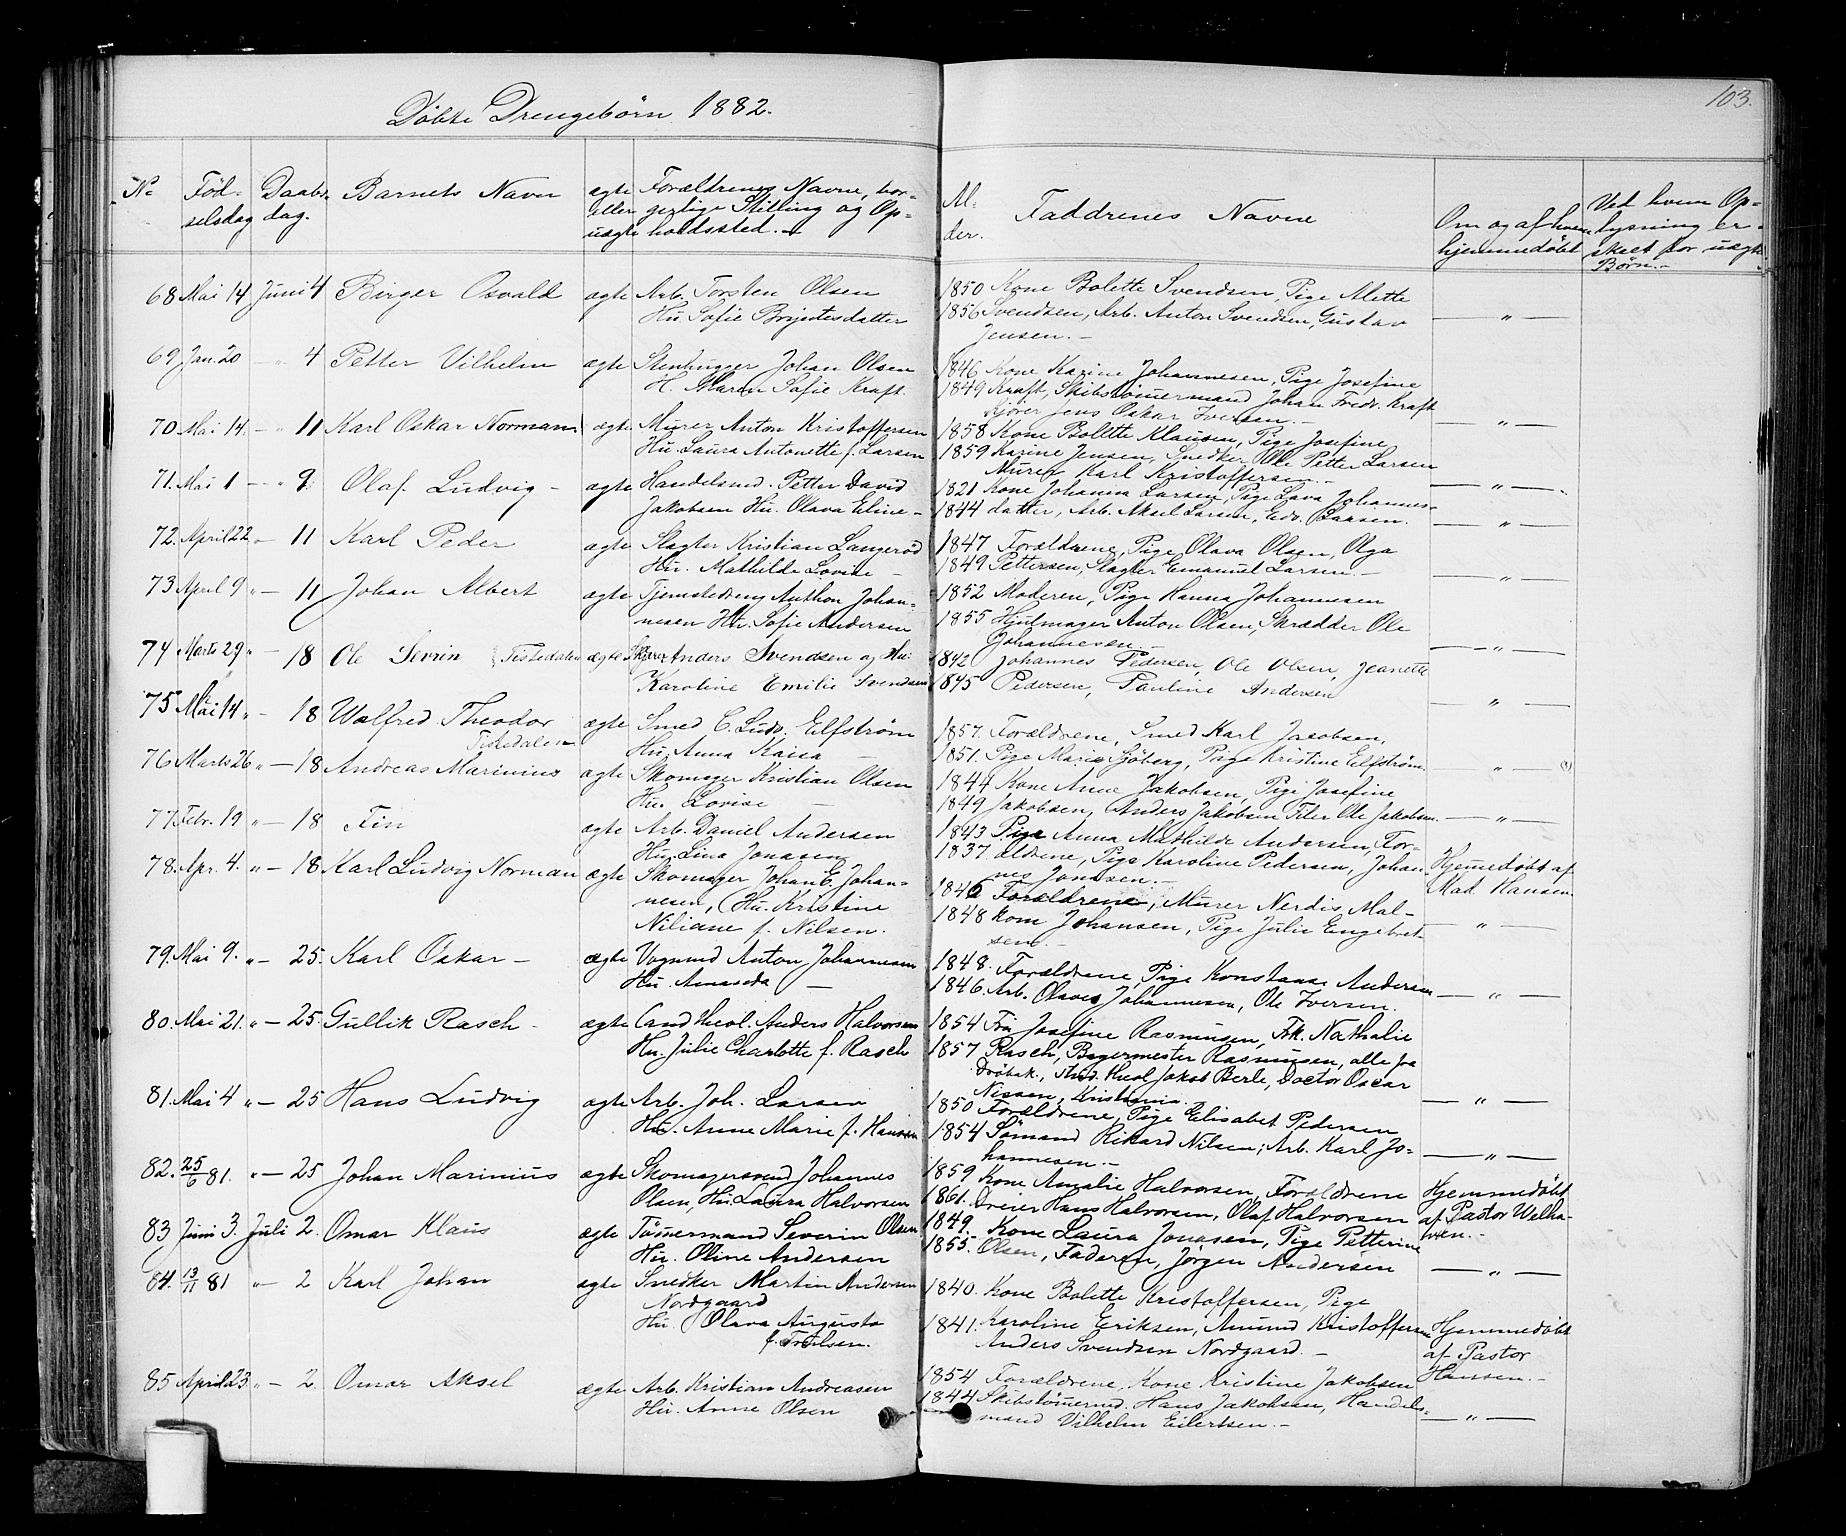 103.
Döbte Drengebörn 1882.
No Födselsdag Daabsdag. Barnets Navn ægte eller uægte Forældrenes Navne, borgerlige Stilling og Opholdssted. Alder. Faddrenes Navne Om og af hvem hjemmedöbt Ved hvem Oplysning er skeet for uægte Börn.
68 Mai 14 Juni 4 Birger Osvald ægte Arb. Torsten Olsen 1850 Kone Bolette Svendsen, Pige Alette
Hu. Sofie Bryntesdatter 1856 Svendsen, Arb. Anton Svendsen, Gustav — " —
Jensen. —
69 Jan. 20 — " 4 Petter Vilhelm ægte Stenhugger Johan Olsen 1846 Kone Karine Johannesen, Pige Josefine
H. Maren Sofie Kraft. 1849 Kraft, Skibstömermand Johan Fredr. Kraft
Jens Oskar Iversen. — — " —
70 Mai 14. — " 11 Karl Oskar Norman. ægte Murer Anton Kristoffersen 1858 Kone Bolette Klausen, Pige Josefine
Hu. Laura Antonette f. Larsen 1859 Karine Jensen, Snedker Ole Petter Larsen
Murer Karl Kristoffersen. — — " —
71. Mai 1 — " 9 Olaf Ludvig — ægte Handelsmd. Petter David 1821 Kone Johanna Larsen, Pige Lava Johannes-
Jakobsen Hu. Olava Eline — 1844 datter, Arb. Aksel Larsen, Edv. Larsen. — " —
72. April 22 " 11 Karl Peder ægte Slagter Kristian Langeröd 1847 Forældrene, Pige Olava Olsen, Olga
Hu. Mathilde Lovise — 1849 Pettersen, Slagter Emanuel Larsen. — — " —
73 April 9 " — 11 Johan Albert ægte Tjenestedreng Anthon Johan- 1852 Moderen, Pige Hanna Johannesen
nesen Hu. Sofie Andersen 1855 Hjulmager Anton Olsen, Skrædder Ole
Johannesen — — " —
74 Marts 29 " — 18 Ole Sevrin Tistedalen ægte Anders Svendsen og Hu. 1842 Johannes Pedersen, Ole Olsen, Jeanette
Karoline Emilie Svendsen 1845 Pedersen, Pauline Andersen — " —
75 Mai 14 " — 18 Walfred Theodor ægte Smed C. Ludv. Elfström 1857. Forældrene, Smed Karl Jacobsen,
Tistedalen Hu. Anna Kaisa — 1851. Pige Marie Sjöberg, Pige Kristine Elfström. — " —
76 Marts 26 " — 18 Andreas Marinius ægte Skomager Kristian Olsen 1844 Kone Anne Jakobsen, Pige Josefine
Hu. Lovise — 1849 Jakobsen, Anders Jakobsen Ole Jakobsen. — " —
77 Febr. 19 " — 18 Fin ægte Arb. Daniel Andersen 1843 Pige Anna Mathilde Andersen, For-
Hu. Lina Jonasen 1837. ældrene, Pige Karoline Pedersen, Johan- Hjemmedöbt af
nes Jonasen. — Mad. Hansen
78. Apr. 4. " — 18 Karl Ludvig Norman ægte Skomager Johan E. Johan- 1846 Forældrene, Murer Nerdis Mal-
nesen, Hu. Kristine 1848 kom Johansen, Pige Julie Engebret- — " —
Niliane f. Nilsen. sen. —
79. Mai 9. " — 25. Karl Oskar — ægte Vognmd Anton Johannesen 1848. Forældrene, Pige Konstanse Andersen
Hu. Amanda — 1846. Arb. Olaves Johannesen, Ole Iversen. — " —
80. Mai 21. " — 25. Gullik Rasch — ægte Cand theol. Anders Halvorsen 1854 Fru Josefine Rasmusen, Frk. Nathalie
Hu. Julie Charlotte f. Rasch 1857 Rasch, Bagermester Rasmusen, alle fra
Dröbak, Stud. theol Jakob Berle, Doctor Oscar
Nissen, Kristiania. — " —
81. Mai 4 " — 25 Hans Ludvig ægte Arb. Joh. Larsen 1850 Forældrene, Pige Elisabet Pedersen
Hu. Anne Marie f. Hansen 1854 Sömand Rikard Nilsen, Arb. Karl Jo-
hannesen. — — " —
82. 25/6 81. " — 25 Johan Marinius ægte Skomagersvend Johannes 1859 Kone Amalie Halvorsen, Forældrene Hjemmedöbt
Olsen, Hu. Laura Halvorsen 1861. Dreier Hans Halvorsen, Olaf Halvorsen af Pastor Welha-
ven. —
83 Juni 3. Juli 2. Omar Klaus ægte Tömermand Severin Olsen 1849. Kone Laura Jonasen, Pige Petterine
Hu. Oline Andersen 1855. Olsen, Faderen, Jörgen Andersen — " —
84. 13/11 81 " — 2 Karl Johan ægte Snedker Martin Andersen 1840. Kone Bolette Kristoffersen, Pige
Nordgaard
Hu. Olava Augusta 1841. Karoline Eriksen, Amund Kristoffersen Hjemmedöbt
f. Troelsen. Anders Svendsen Nordgaard. — af Pastor
Hansen. —
85 April 23 " — 2. Omar Aksel ægte Arb. Kristian Andreasen 1854 Forældrene, Kone Kristine Jakobsen
Hu. Anne Olsen 1844 Skibstömermd. Hans Jakobsen, Handels- — " —
mand Vilhelm Eilertsen. —